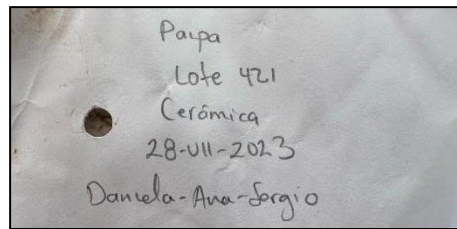 Paipa
Lote 421
Cerámica
28-VII-2023
Daniela-Ana-Sergio